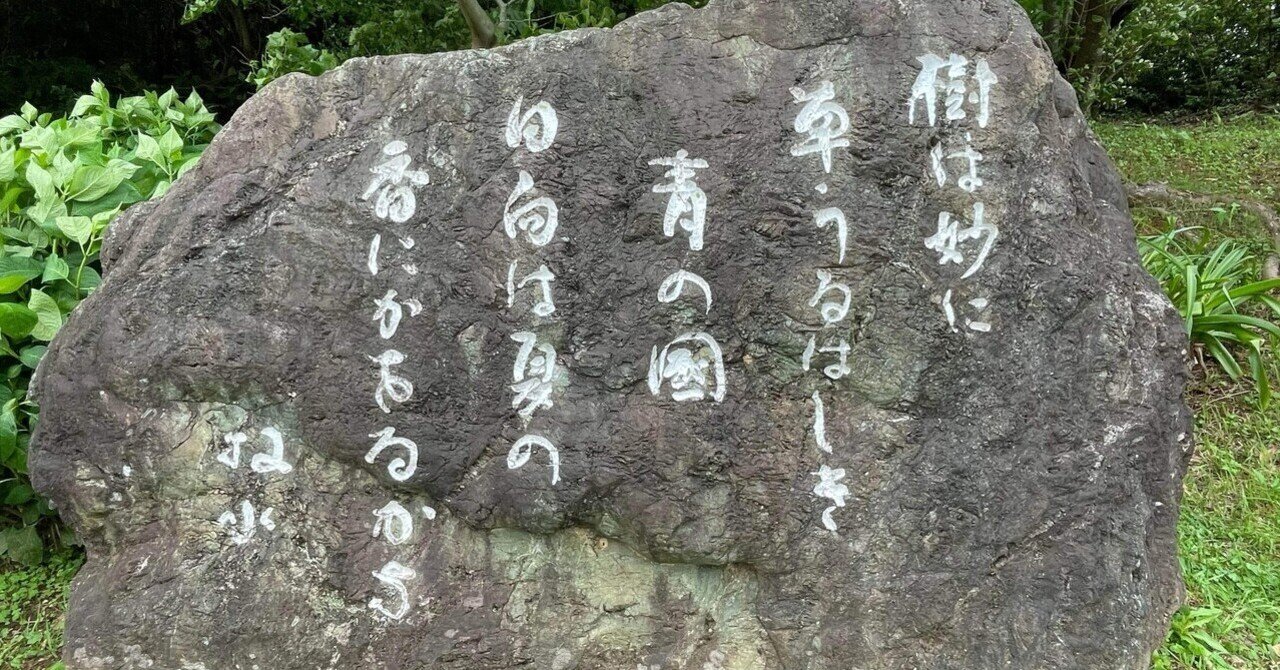 樹は妙に
草うるはしき
青の國
日向は夏の
香にかをるかな
牧水